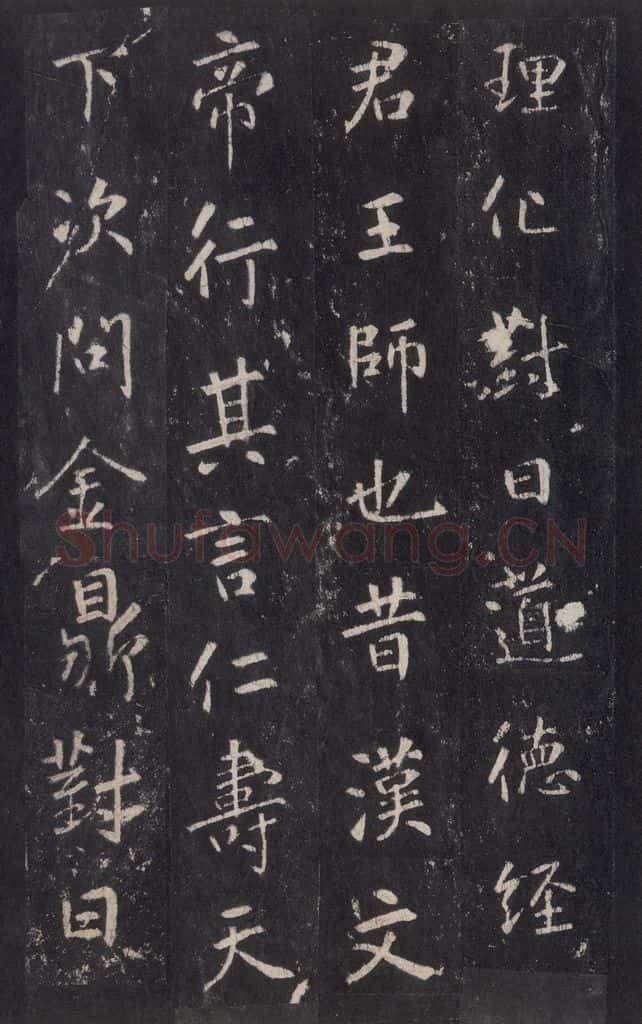 理化對曰道德經
君王師也昔漢文
帝行其言仁壽天
下次問金鼎對曰
Shufawang.CN